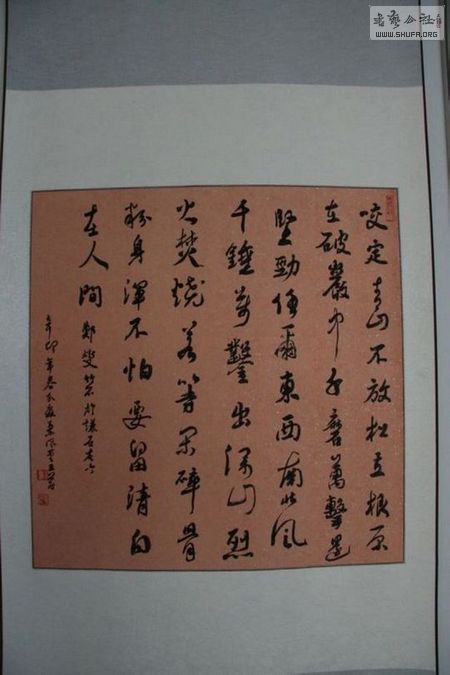 書藝公社
WWW.SHUFA.ORG
咬定青山不放松立根原
在破巖中千磨萬擊還
堅勁任爾東西南北風
千錘萬鑿出深山烈
火焚燒若等閑碎骨
粉身渾不怕要留清白
在人間 鄭燮
辛卯年春